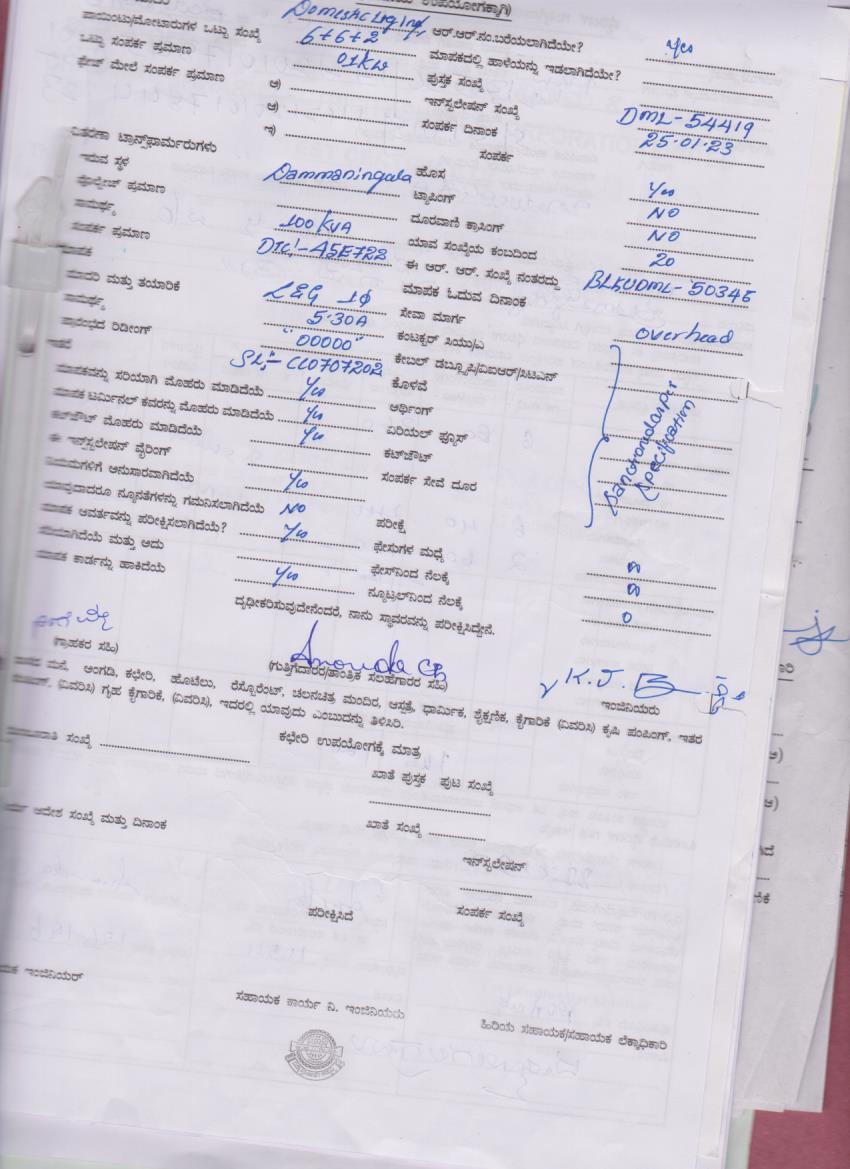 ಉಪಯೋಗಕ್ಕಾಗಿ)
Domestic Ltg ಆರ್.ಆರ್.ನಂ.ಬರೆಯಲಾಗಿದೆಯೇ? Yes
ಪಾಯಿಂಟು/ಮೋಟಾರುಗಳ ಒಟ್ಟು ಸಂಖ್ಯೆ 6+6+2 ಮಾಪಕದಲ್ಲಿ ಹಾಳೆಯನ್ನು ಇಡಲಾಗಿದೆಯೇ?
ಒಟ್ಟು ಸಂಪರ್ಕ ಪ್ರಮಾಣ 01KW ಪುಸ್ತಕ ಸಂಖ್ಯೆ
ಫೇಜ್ ಮೇಲೆ ಸಂಪರ್ಕ ಪ್ರಮಾಣ ಅ) ಇನ್‌ಸ್ಟಲೇಷನ್ ಸಂಖ್ಯೆ DML-54419
ಆ) ಸಂಪರ್ಕ ದಿನಾಂಕ 25.01.23
ಇ) ಸಂಪರ್ಕ
ವಿತರಣಾ ಟ್ರಾನ್ಸ್‌ಫಾರ್ಮರುಗಳು ಹೊಸ Yes
ಇರುವ ಸ್ಥಳ Dammaningala ಟ್ಯಾಪಿಂಗ್ NO
ವೋಲ್ಟೇಜ್ ಪ್ರಮಾಣ ದೂರವಾಣಿ ಕ್ರಾಸಿಂಗ್ NO
ಸಾಮರ್ಥ್ಯ 100 KVA ಯಾವ ಸಂಖ್ಯೆಯ ಕಂಬದಿಂದ 20
ಸಂಪರ್ಕ ಪ್ರಮಾಣ DTC:-ASE722 ಈ ಆರ್. ಆರ್. ಸಂಖ್ಯೆ ನಂತರದ್ದು BLKUDML-50345
ಮಾಪಕ ಮಾಪಕ ಓದುವ ದಿನಾಂಕ
ಮಾದರಿ ಮತ್ತು ತಯಾರಿಕೆ L&G 1Φ ಸೇವಾ ಮಾರ್ಗ overhead
ಸಾಮರ್ಥ್ಯ 5-30A ಕಂಟಕ್ಟರ್ ಸಿಯು/ಎ
ಪ್ರಾರಂಭದ ರಿಡೀಂಗ್ "00000" ಕೇಬಲ್ ಡಬ್ಲ್ಯೂಪಿ/ಏಐಆರ್/ಸಿಟಿಎನ್
ಇತರೆ SL:- CC0707202 ಕೊಳವೆ
ಮಾಪಕವನ್ನು ಸರಿಯಾಗಿ ಮೊಹರು ಮಾಡಿದೆಯೆ Yes ಅರ್ಥಿಂಗ್
ಮಾಪಕ ಟರ್ಮಿನಲ್ ಕವರನ್ನು ಮೊಹರು ಮಾಡಿದೆಯೆ Yes ಏರಿಯಲ್ ಫ್ಯೂಸ್
ಕಟ್‌ಔಟ್ ಮೊಹರು ಮಾಡಿದೆಯೆ Yes ಕಟ್‌ಔಟ್
ಈ ಇನ್‌ಸ್ಟಲೇಷನ್ ವೈರಿಂಗ್ ಸಂಪರ್ಕ ಸೇವೆ ದೂರ
Sanctioned as per
Specification
ನಿಯಮಗಳಿಗೆ ಅನುಸಾರವಾಗಿದೆಯೆ Yes
ಯಾವುದಾದರೂ ನ್ಯೂನತೆಗಳನ್ನು ಗಮನಿಸಲಾಗಿದೆಯೆ NO ಪರೀಕ್ಷೆ
ಮಾಪಕ ಆವರ್ತವನ್ನು ಪರೀಕ್ಷಿಸಲಾಗಿದೆಯೆ? Yes ಫೇಸುಗಳ ಮಧ್ಯೆ
ಸರಿಯಾಗಿದೆಯೆ ಮತ್ತು ಅದು ಫೇಸ್‌ನಿಂದ ನೆಲಕ್ಕೆ
ಮಾಪಕ ಕಾರ್ಡನ್ನು ಹಾಕಿದೆಯೆ Yes ನ್ಯೂಟ್ರಲ್‌ನಿಂದ ನೆಲಕ್ಕೆ
ದೃಢೀಕರಿಸುವುದೇನೆಂದರೆ, ನಾನು ಸ್ಥಾವರವನ್ನು ಪರೀಕ್ಷಿಸಿದ್ದೇನೆ.
(ಗ್ರಾಹಕರ ಸಹಿ) (ಗುತ್ತಿಗೆದಾರರ/ತಾಂತ್ರಿಕ ಸಲಹೆಗಾರರ ಸಹಿ)
ಇಂಜಿನಿಯರು
ಮನೆ, ಅಂಗಡಿ, ಕಛೇರಿ, ಹೊಟೆಲು, ರೆಸ್ಟೋರೆಂಟ್, ಚಲನಚಿತ್ರ ಮಂದಿರ, ಆಸ್ಪತ್ರೆ, ಧಾರ್ಮಿಕ, ಶೈಕ್ಷಣಿಕ, ಕೈಗಾರಿಕೆ (ವಿವರಿಸಿ) ಕೃಷಿ ಪಂಪಿಂಗ್, ಇತರ
(ವಿವರಿಸಿ) ಗೃಹ ಕೈಗಾರಿಕೆ, (ವಿವರಿಸಿ), ಇದರಲ್ಲಿ ಯಾವುದು ಎಂಬುದನ್ನು ತಿಳಿಸಿರಿ.
ಕಛೇರಿ ಉಪಯೋಗಕ್ಕೆ ಮಾತ್ರ
ಸಂಖ್ಯೆ ಖಾತೆ ಪುಸ್ತಕ ಪುಟ ಸಂಖ್ಯೆ
ಆದೇಶ ಸಂಖ್ಯೆ ಮತ್ತು ದಿನಾಂಕ ಖಾತೆ ಸಂಖ್ಯೆ
ಇನ್‌ಸ್ಟಲೇಷನ್
ಪರೀಕ್ಷಿಸಿದೆ ಸಂಪರ್ಕ ಸಂಖ್ಯೆ
ಇಂಜಿನಿಯರ್
ಸಹಾಯಕ ಕಾರ್ಯ ನಿ. ಇಂಜಿನಿಯರು
ಹಿರಿಯ ಸಹಾಯಕ/ಸಹಾಯಕ ಲೆಕ್ಕಾಧಿಕಾರಿ